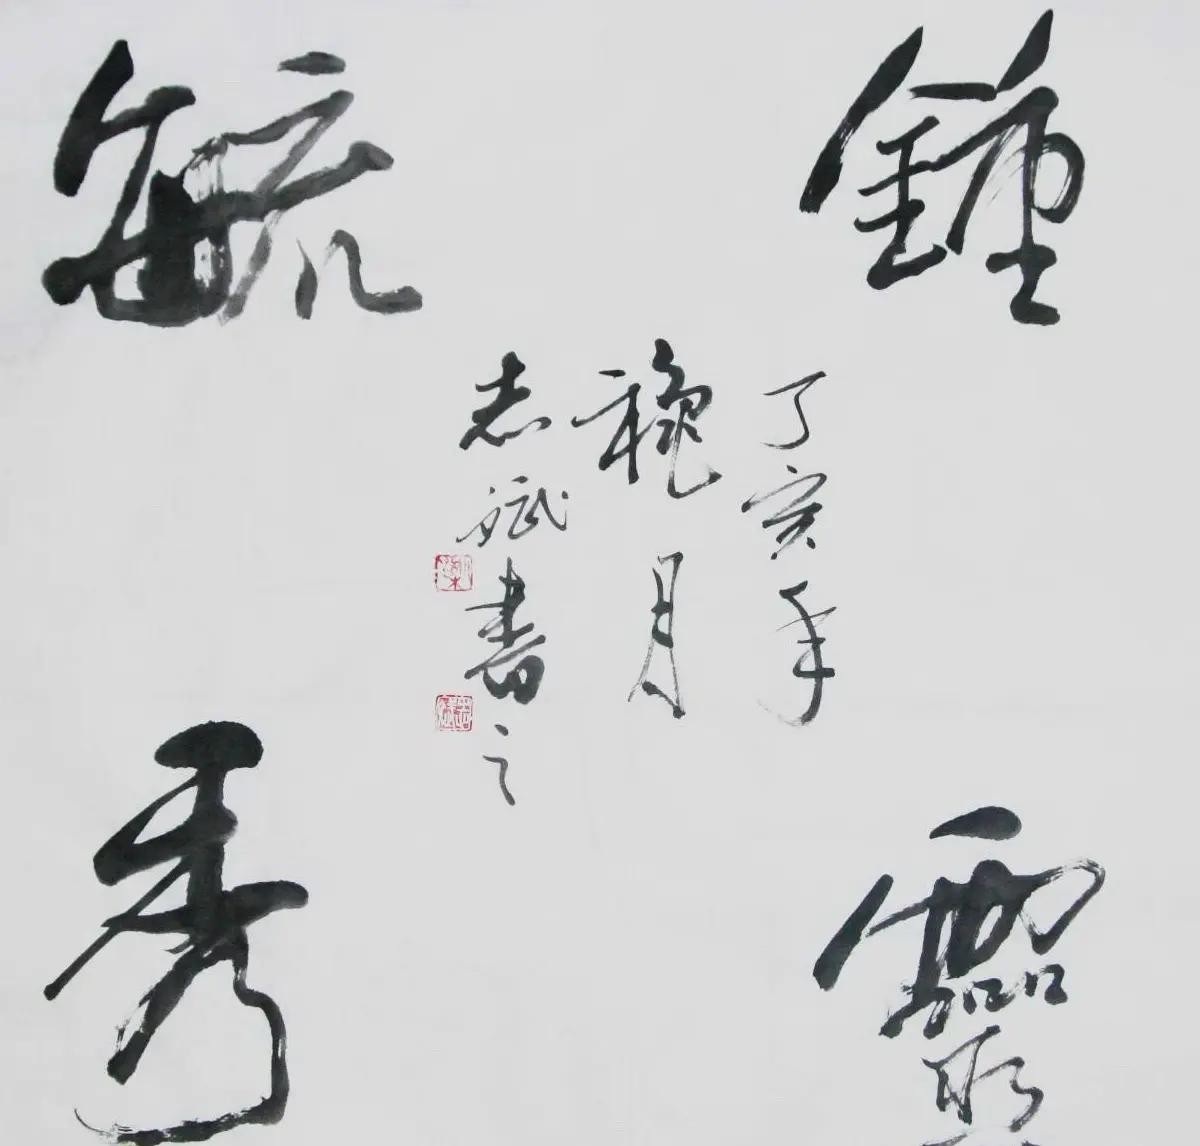 鍾靈
毓秀
丁亥年
穐月
志斌書之